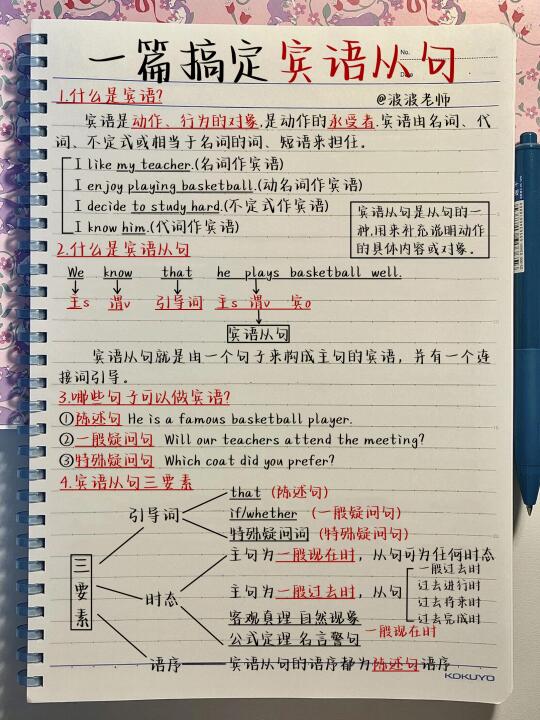 一篇搞定宾语从句
No.
Date
1.什么是宾语?
@波波老师
宾语是动作、行为的对象,是动作的承受者.宾语由名词、代
词、不定式或相当于名词的词、短语来担任。
I like my teacher.(名词作宾语)
I enjoy playing basketball.(动名词作宾语)
I decide to study hard.(不定式作宾语)
I know him.(代词作宾语)
宾语从句是从句的一
种,用来补充说明动作
的具体内容或对象.
2.什么是宾语从句
We know that he plays basketball well.
主s 谓v 引导词 主s 谓v 宾o
宾语从句
宾语从句就是由一个句子来构成主句的宾语，并有一个连
接词引导。
3.哪些句子可以做宾语?
①陈述句 He is a famous basketball player.
②一般疑问句 Will our teachers attend the meeting?
③特殊疑问句 Which coat did you prefer?
4.宾语从句三要素
三要素
引导词
that (陈述句)
if/whether (一般疑问句)
特殊疑问词 (特殊疑问句)
时态
主句为一般现在时，从句可为任何时态
主句为一般过去时，从句
一般过去时
过去进行时
过去将来时
过去完成时
客观真理 自然现象
公式定理 名言警句
一般现在时
语序
宾语从句的语序都为陈述句语序
KOKUYO